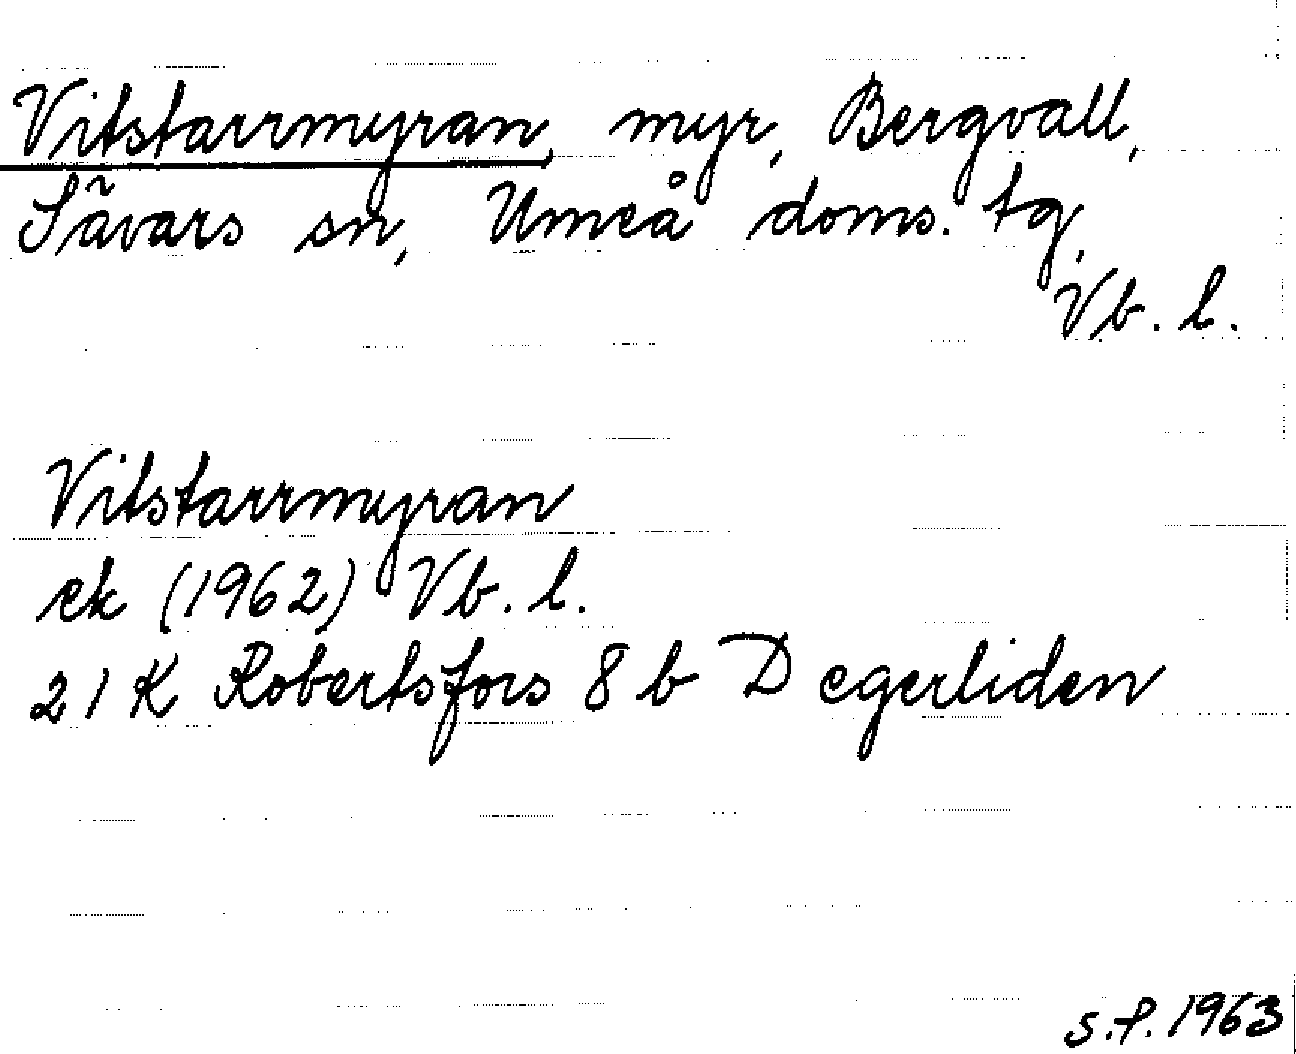 Vitstarrmyran, myr, Bergvall,
Sävars sn, Umeå doms. tg,
Vb. l.
Vitstarrmyran
ek (1962) Vb. l.
21 K Robertsfors 8 b Degerliden
S.P. 1963